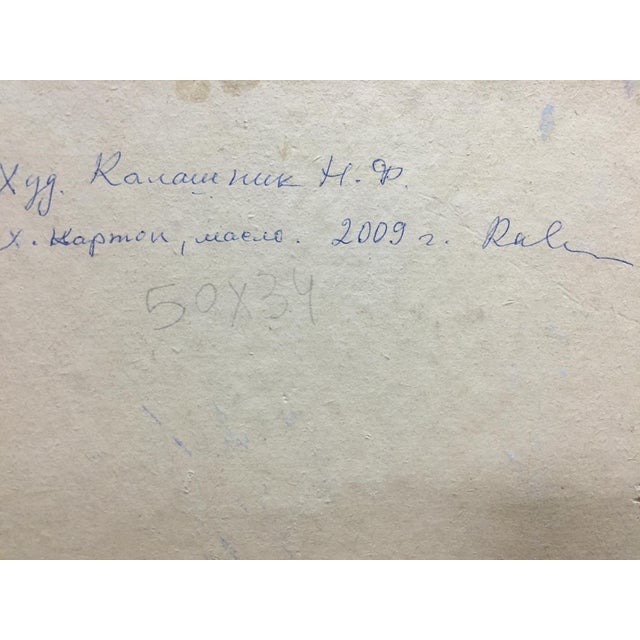 Худ. Калашник Н. Ф.
х. картон, масло. 2009 г.
50х34